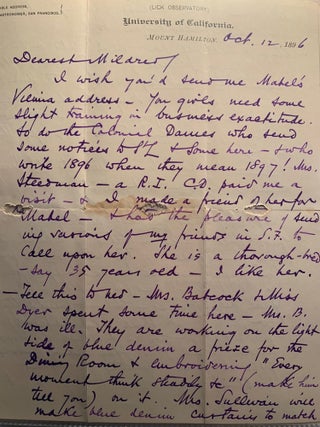 (LICK OBSERVATORY)
ABLE ADDRESS,
ASTRONOMER, SAN FRANCISCO.
University of California.
MOUNT HAMILTON. Oct. 12. 1896
Dearest Mildred/
I wish you'd send me Mabel's
Vienna address – You girls need some
slight training in business exactitude.
So do the Colonial Dames who send
some notices to & some here – & who
write 1896 when they mean 1897! Mrs.
Steedman – a R.I. C.D. paid me a
visit – & I made a friend of her for
Mabel – I had the pleasure of send
ing various of my friends in S.F. to
call upon her. She is a thorough-bred
– say 35 years old – I like her.
– Tell this to Ned – Mrs. Babcock & Miss
Dyer spent some time here – Mrs. B.
was ill. They are working on the light
side of blue denim a frieze for the
Dining Room & embroidering "Every
moment think steadily &c" (make him
tell you) on it. Mrs. Sullivan will
make blue denim curtains to match